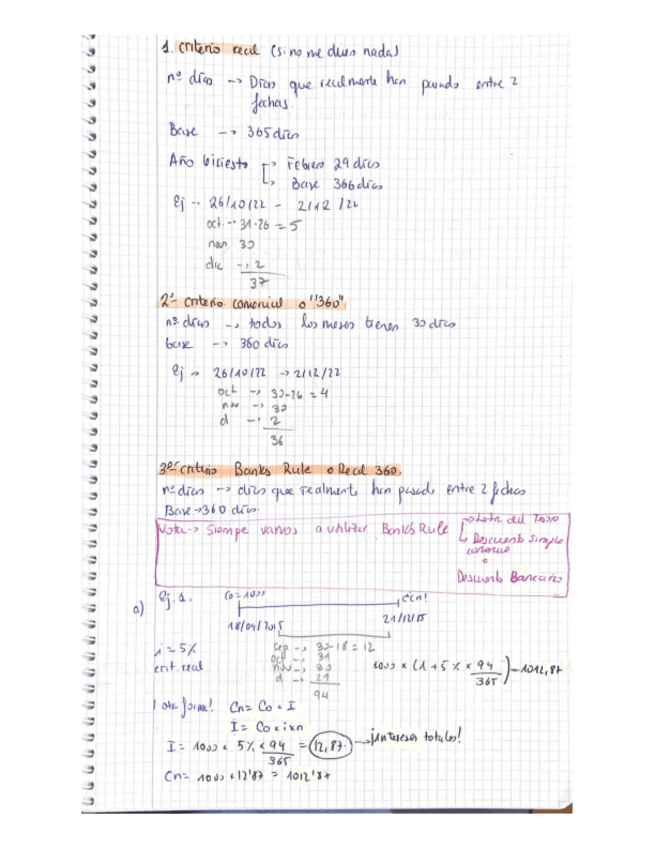 1. Criterio real (si no me dicen nada)
nº días -> Días que realmente han pasado entre 2
fechas.
Base -> 365 días
Año bisiesto -> Febrero 29 días
-> Base 366 días
Ej -> 26/10/22 - 2/12/22
oct -> 31-26 = 5
nov 30
dic -> 2
37
2º- Criterio comercial o "360"
nº días -> todos los meses tienen 30 días
base -> 360 días
Ej -> 26/10/22 -> 2/12/22
oct -> 30-26 = 4
nov -> 30
d -> 2
36
3er criterio Banks Rule o Real 360.
nº días -> días que realmente han pasado entre 2 fechas
Base -> 360 días
Nota -> Siempe vamos a utilizar Banks Rule -> Letra del Tesoro
-> Descuento simple
comercial
o
Descuento Bancario
Ej 1. Co = 1000 ¿Cn!
a)
18/09/2015 21/12/15
i = 5%
crit. real
sep -> 30-18 = 12
oct -> 31
nov -> 30
d -> 21
94
1000 × (1 + 5% × 94/365) = 1012,87
! otra forma! Cn = Co + I
I = Co × i × n
I = 1000 × 5% × 94/365 = 12,87 -> ¡intereses totales!
Cn = 1000 + 12'87 = 1012'87